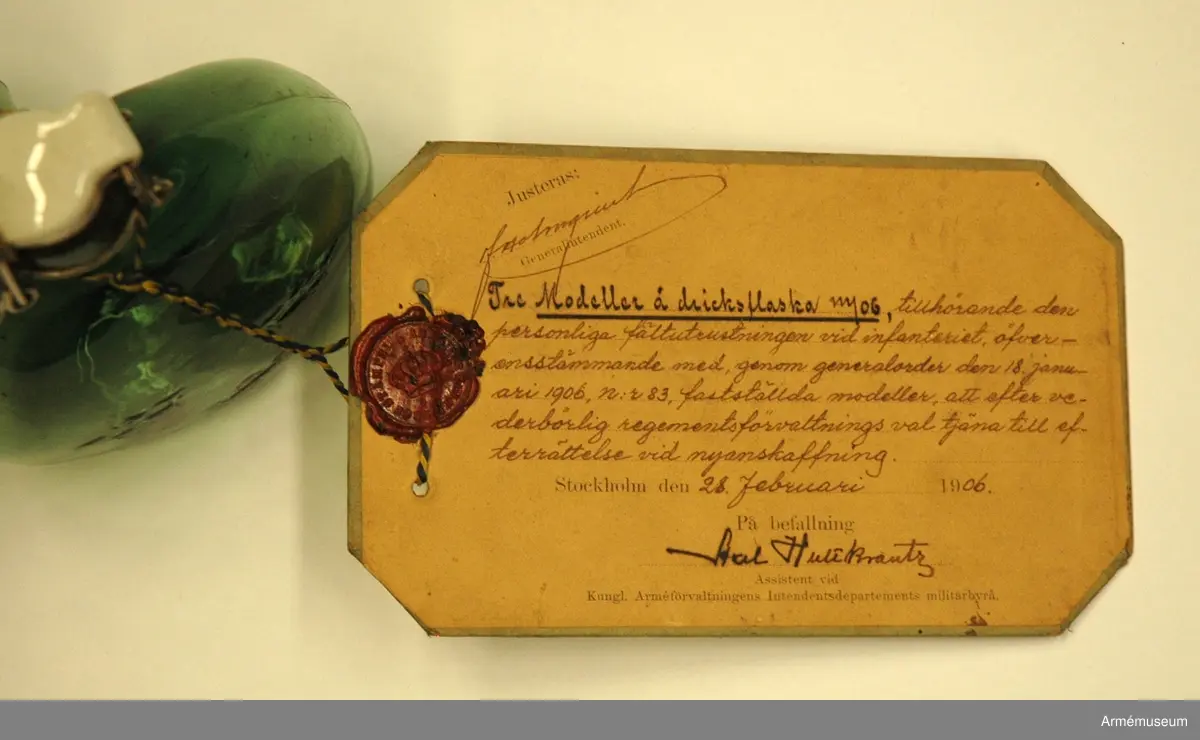 Justeras:
Generalintendent.
Tre Modeller å dricksflaska m/06, tillhörande den
personliga fältutrustningen vid infanteriet, öfver-
ensstämmande med, genom generalorder den 18 janu-
ari 1906, n:r 83, fastställda modeller, att efter ve-
derbörlig regementsförvaltnings val tjäna till ef-
terrättelse vid nyanskaffning.
Stockholm den 28 februari 1906.
På befallning
Axel Hultkrantz
Assistent vid
Kungl. Arméförvaltningens Intendentsdepartements militärbyrå.
Armémuseum